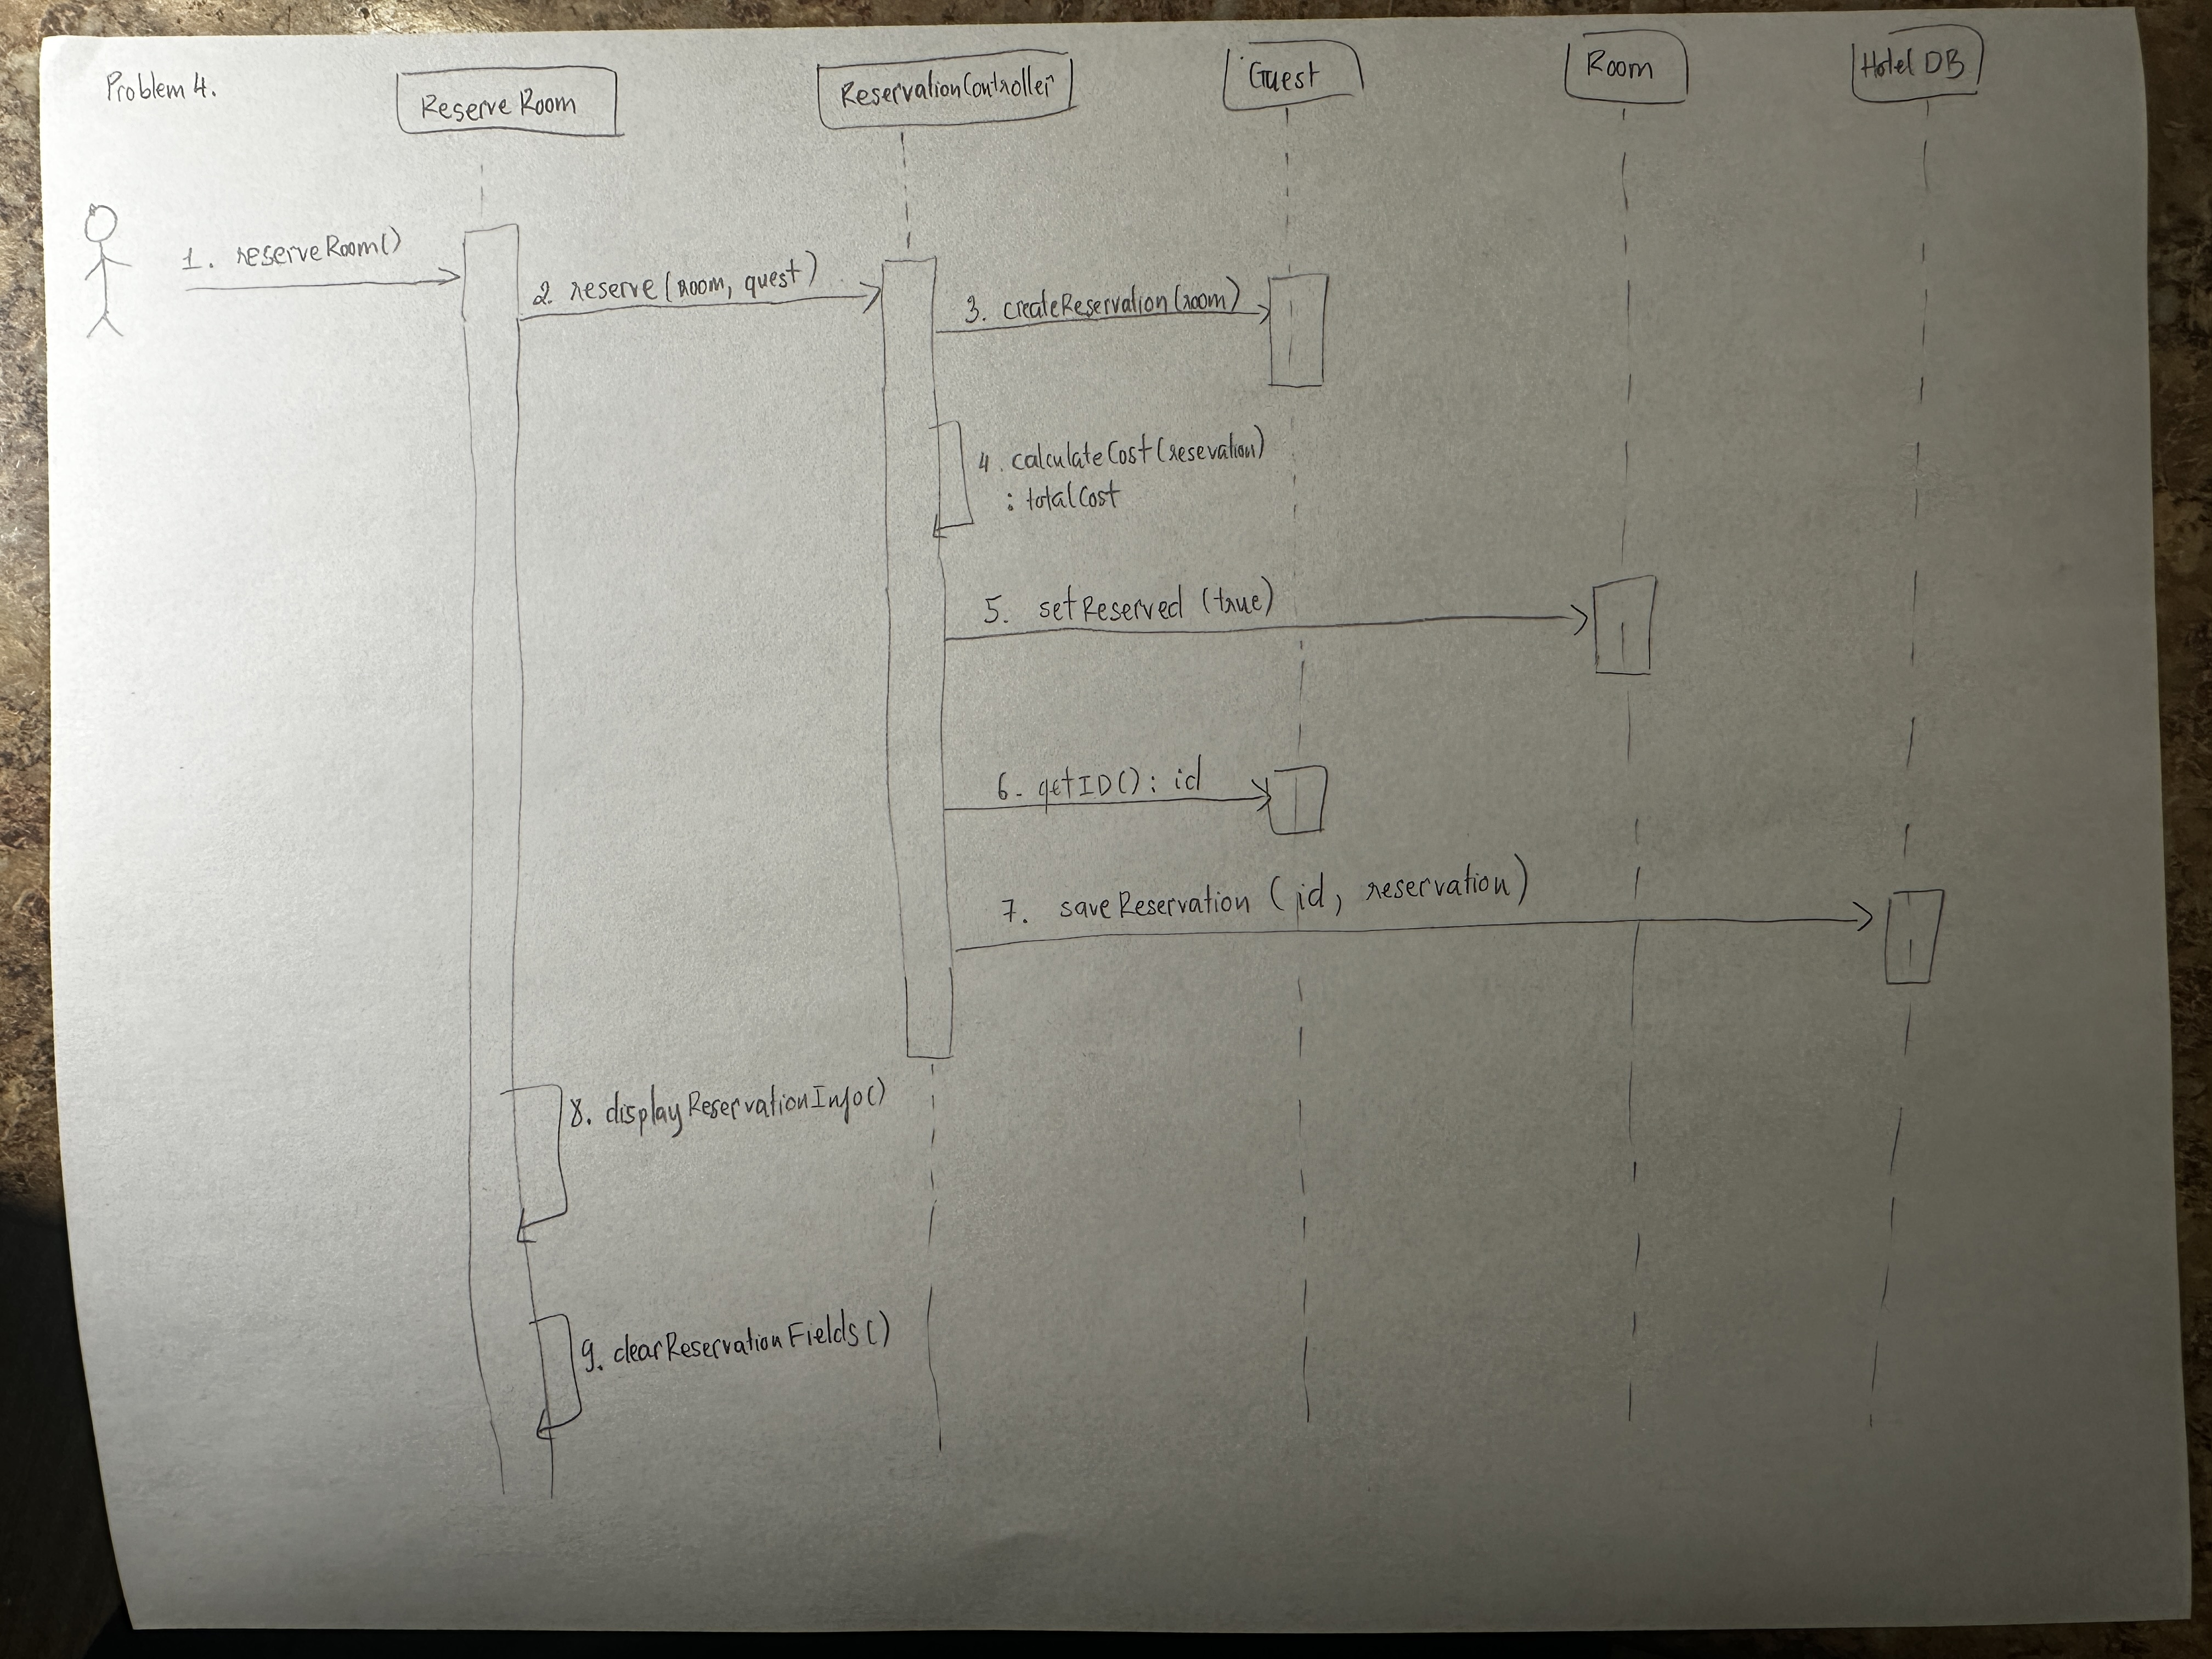 Problem 4.
Reserve Room
ReservationController
Guest
Room
Hotel DB
1. reserveRoom()
2. reserve(room, quest)
3. createReservation(room)
4. calculateCost(resevation)
: totalCost
5. setReserved (true)
6. getID(): id
7. saveReservation (id, reservation)
8. displayReservationInfo()
9. clearReservationFields()